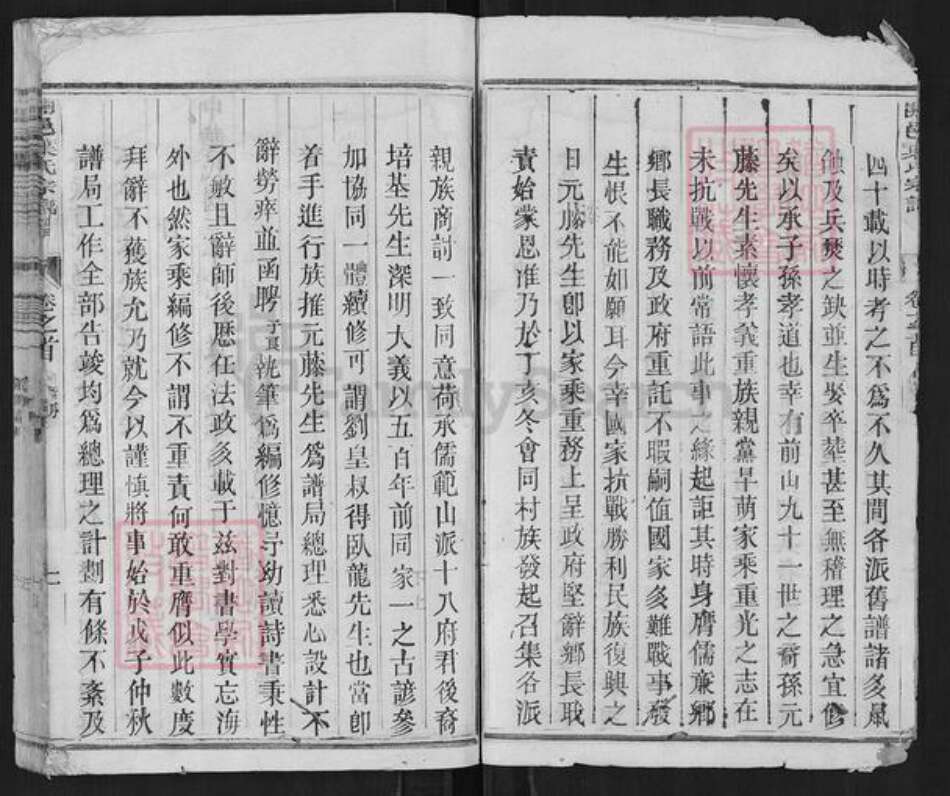 四十載以時考之不爲不久其間各派舊譜諸多鼠
蝕及兵燹之缺並生娶卒葬甚至無稽理之急宜修
矣以承子孫孝道也幸有前山九十一世之裔孫元
藤先生素懷孝義重族親黨早萌家乘重光之志在
未抗戰以前常語此事之緣起詎其時身膺儒藁鄉
鄉長職務及政府重託不暇嗣值國家多難戰事發
生恨不能如願耳今幸國家抗戰勝利民族復興之
日元藤先生卽以家乘重務上呈政府堅辭鄉長戢
責始蒙恩准乃於丁亥冬會同村族發起召集各派
親族商討一致同意荷承儒範山派十八府君後裔
培基先生深明大義以五百年前同家一之古諺參
加協同一體續修可謂劉皇叔得臥龍先生也當卽
着手進行族推元藤先生爲譜局總理悉心設計不
辭勞瘁並函聘予頁執筆爲編修憶予幼讀詩書秉性
不敏且辭師後歷任法政亥載于兹對書學實忘海
外也然家乘編修不謂不重責何敢重膺似此數度
拜辭不獲族允乃就今以謹慎將事始於戊子仲秋
譜局工作全部告竣均爲總理之計劃有條不紊及
邑吳氏宗譜
卷之首
七
FamilySearch